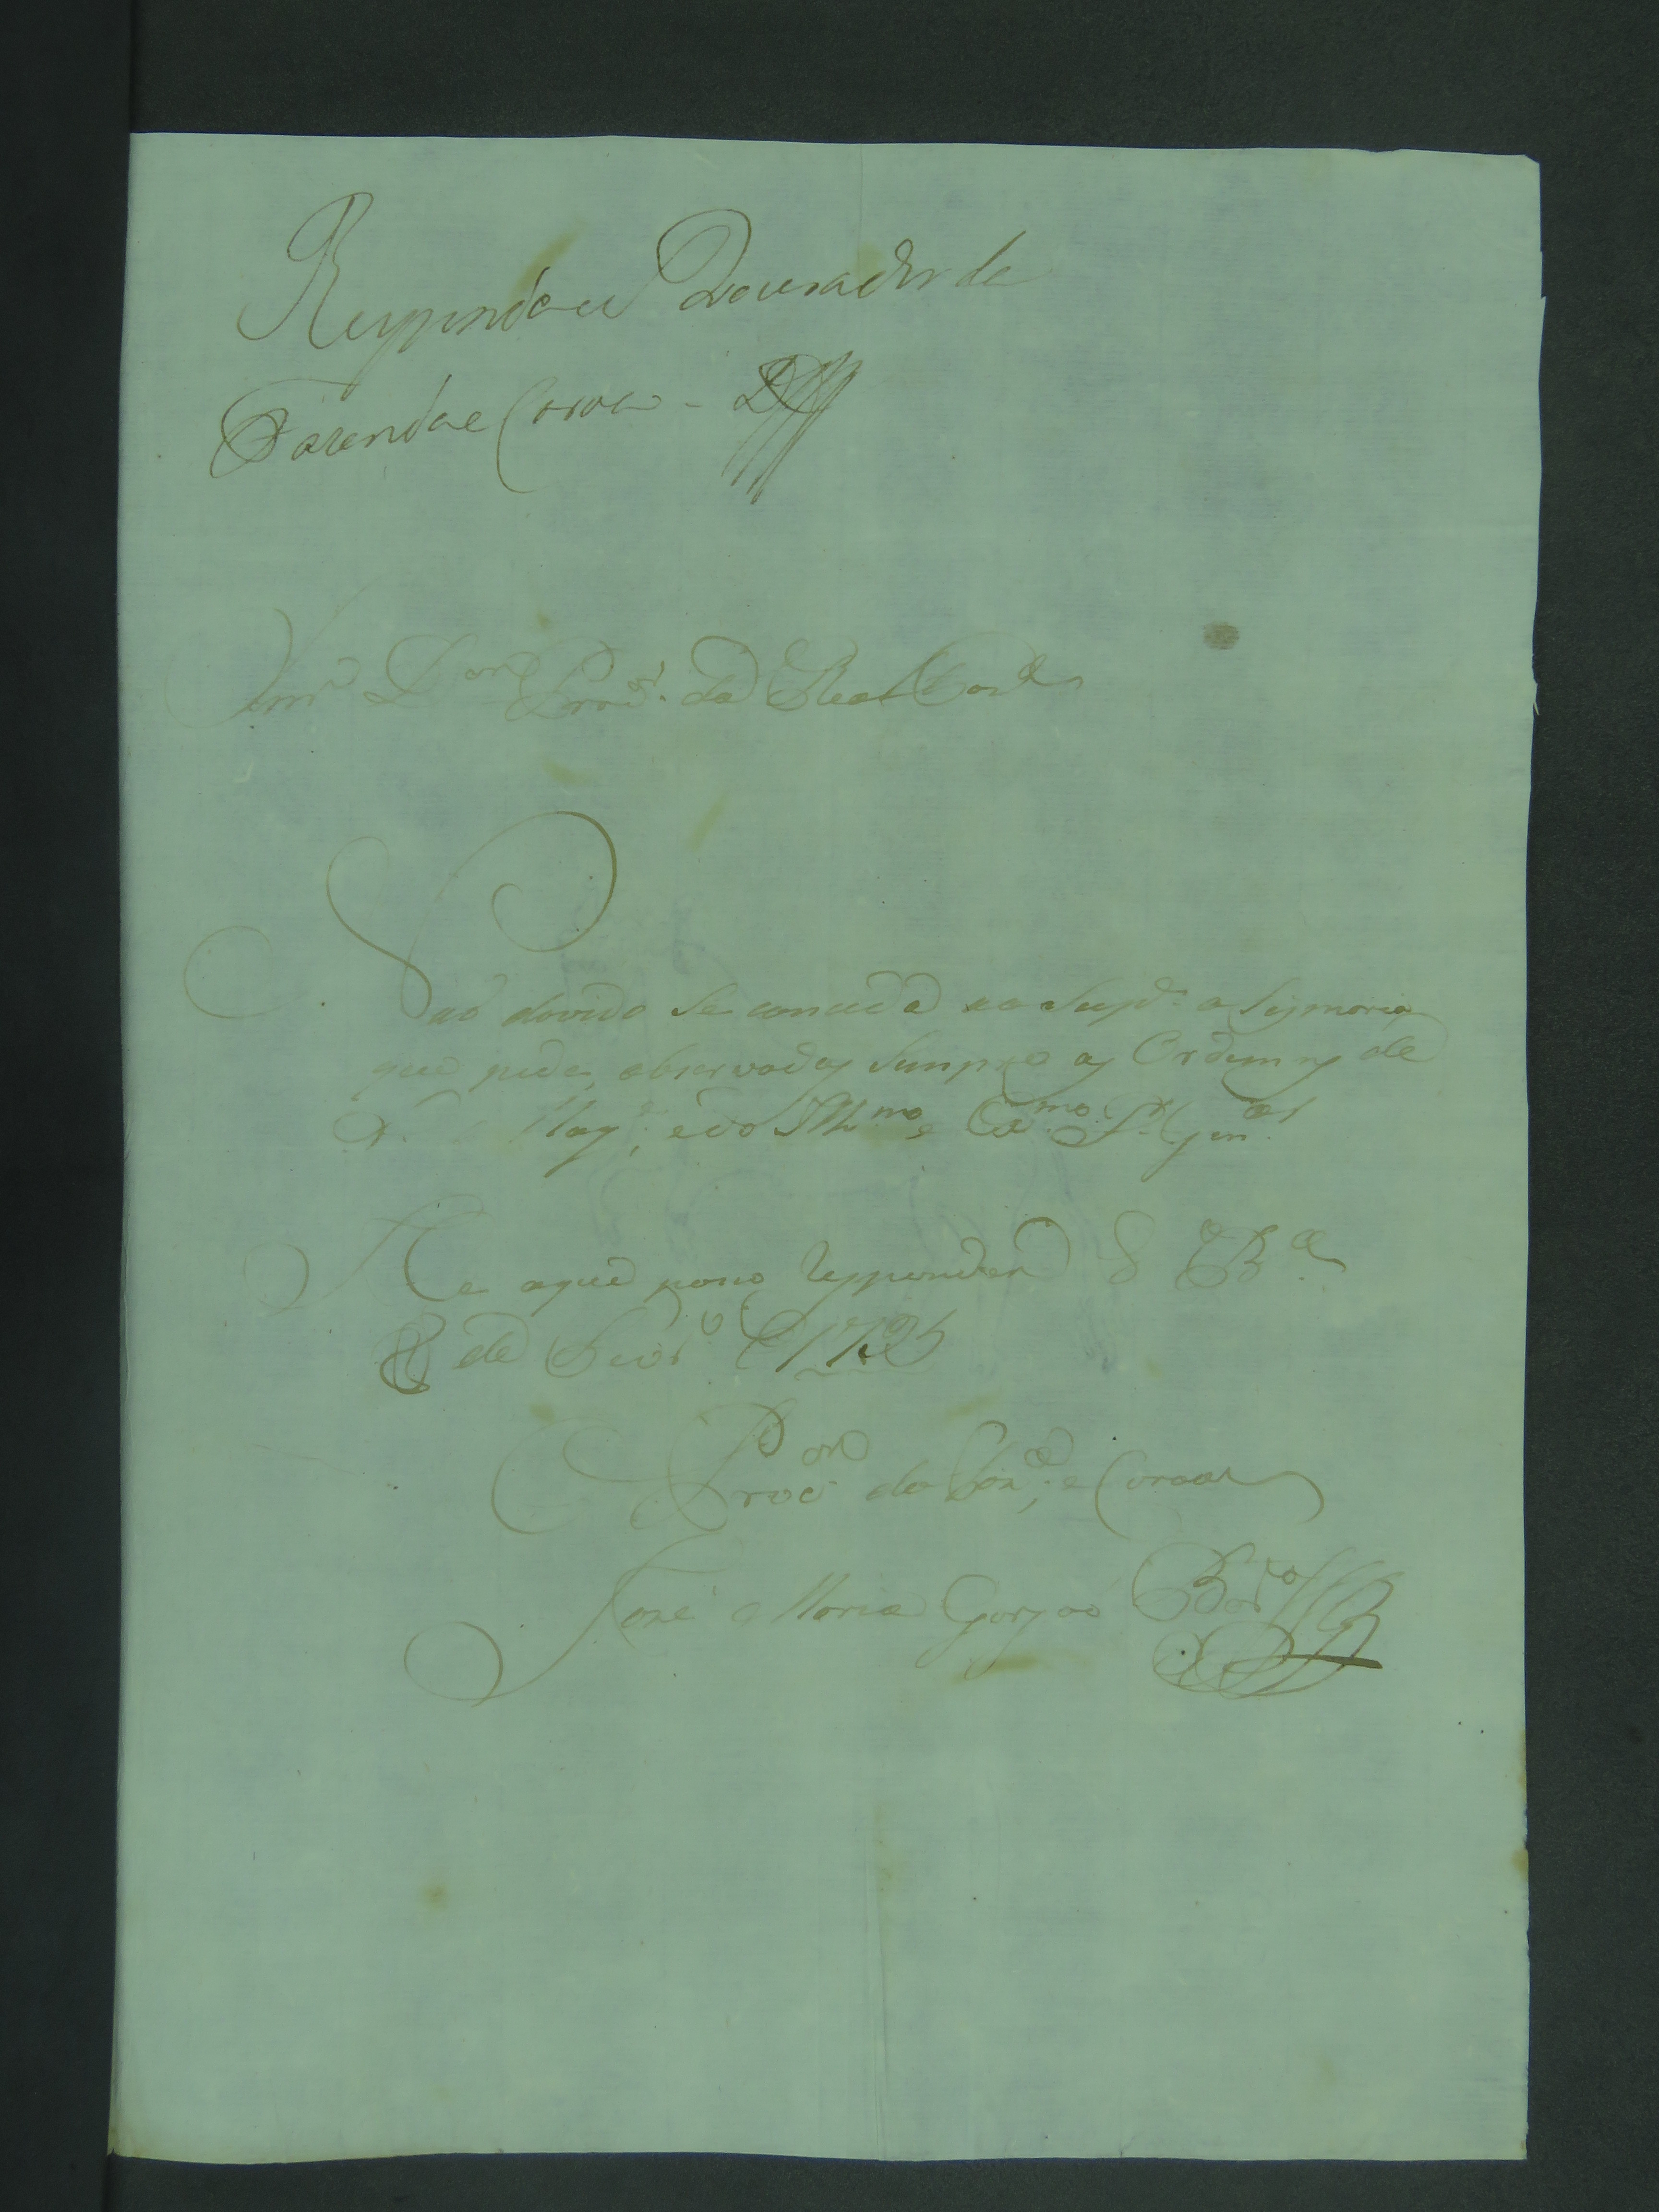 Responda o Procurador da
Fazenda e Coroa -
Snr̃ D.or Prov.or da Real Faz.da
Naõ duvido se conceda ao Sup.e a Sismaria,
que pede, observadas sempre as Ordens de
S. Mag.e, e do Ill.mo e Ex.mo S.r Gen.al
He o que posso responder
8 de Fevr.o de 1795
O Proc.or da Faz.da, e Coroa
José Maria Gorjaõ